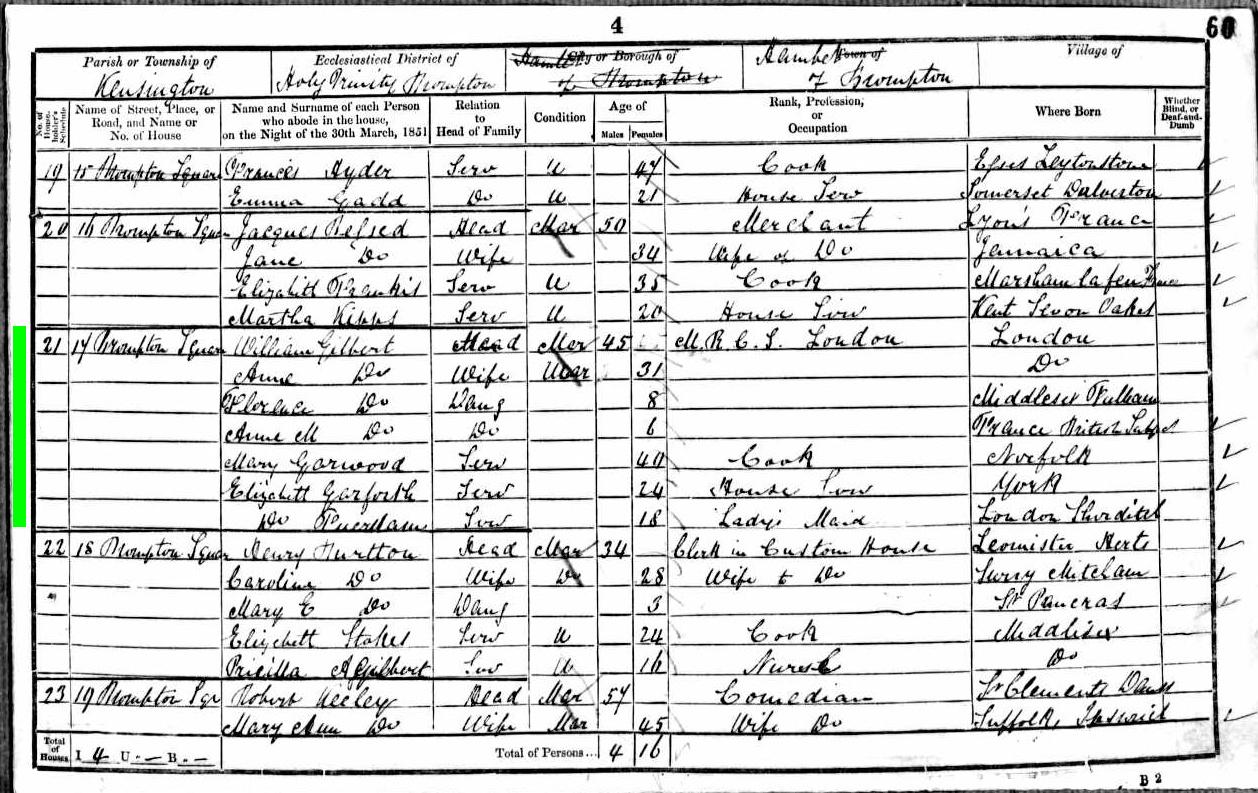 4
60
Parish or Township of Ecclesiastical District of City or Borough of Town of Village of
Kensington Holy Trinity Brompton of Brompton Hamlet of Brompton
No. of House-holder's Schedule Name of Street, Place, or Road, and Name or No. of House Name and Surname of each Person who abode in the house, on the Night of the 30th March, 1851 Relation to Head of Family Condition Age of Males Females Rank, Profession, or Occupation Where Born Whether Blind, or Deaf-and-Dumb
19 15 Brompton Square Frances Ryder Serv U 47 Cook Essex Leytonstone
Emma Gadd Do U 21 House Serv Somerset Dulverton
20 16 Brompton Square Jacques Head Mar 50 Merchant Lyons France
Jane Do Wife 34 Wife of Do Jamaica
Elizabeth Serv U 35 Cook Marsham
Martha Kipps Serv U 20 House Serv Kent Seven Oakes
21 17 Brompton Square William Gilbert Head Mar 45 M.R.C.S. London London
Anne Do Wife Mar 31 Do
Florence Do Daug 8 Middlesex Fulham
Anne M Do Do 6 France British Subject
Mary Garwood Serv 40 Cook Norfolk
Elizabeth Garforth Serv 24 House Serv York
Do Serv 18 Ladys Maid London Shoreditch
22 18 Brompton Square Henry Head Mar 34 Clerk in Custom House Leominster Herts
Caroline Do Wife Do 28 Wife to Do Surry Mitcham
Mary E Do Daug 3 St Pancras
Elizabeth Stokes Serv U 24 Cook Middlesex
Pricilla A Gilbbert Serv U 16 Nurse Do
23 19 Brompton Sqr Robert Keeley Head Mar 57 Comedian St Clements Danes
Mary Ann Do Wife Mar 45 Wife Do Suffolk, Ipswich
Total of Houses I 4 U - B - Total of Persons... 4 16
B 2